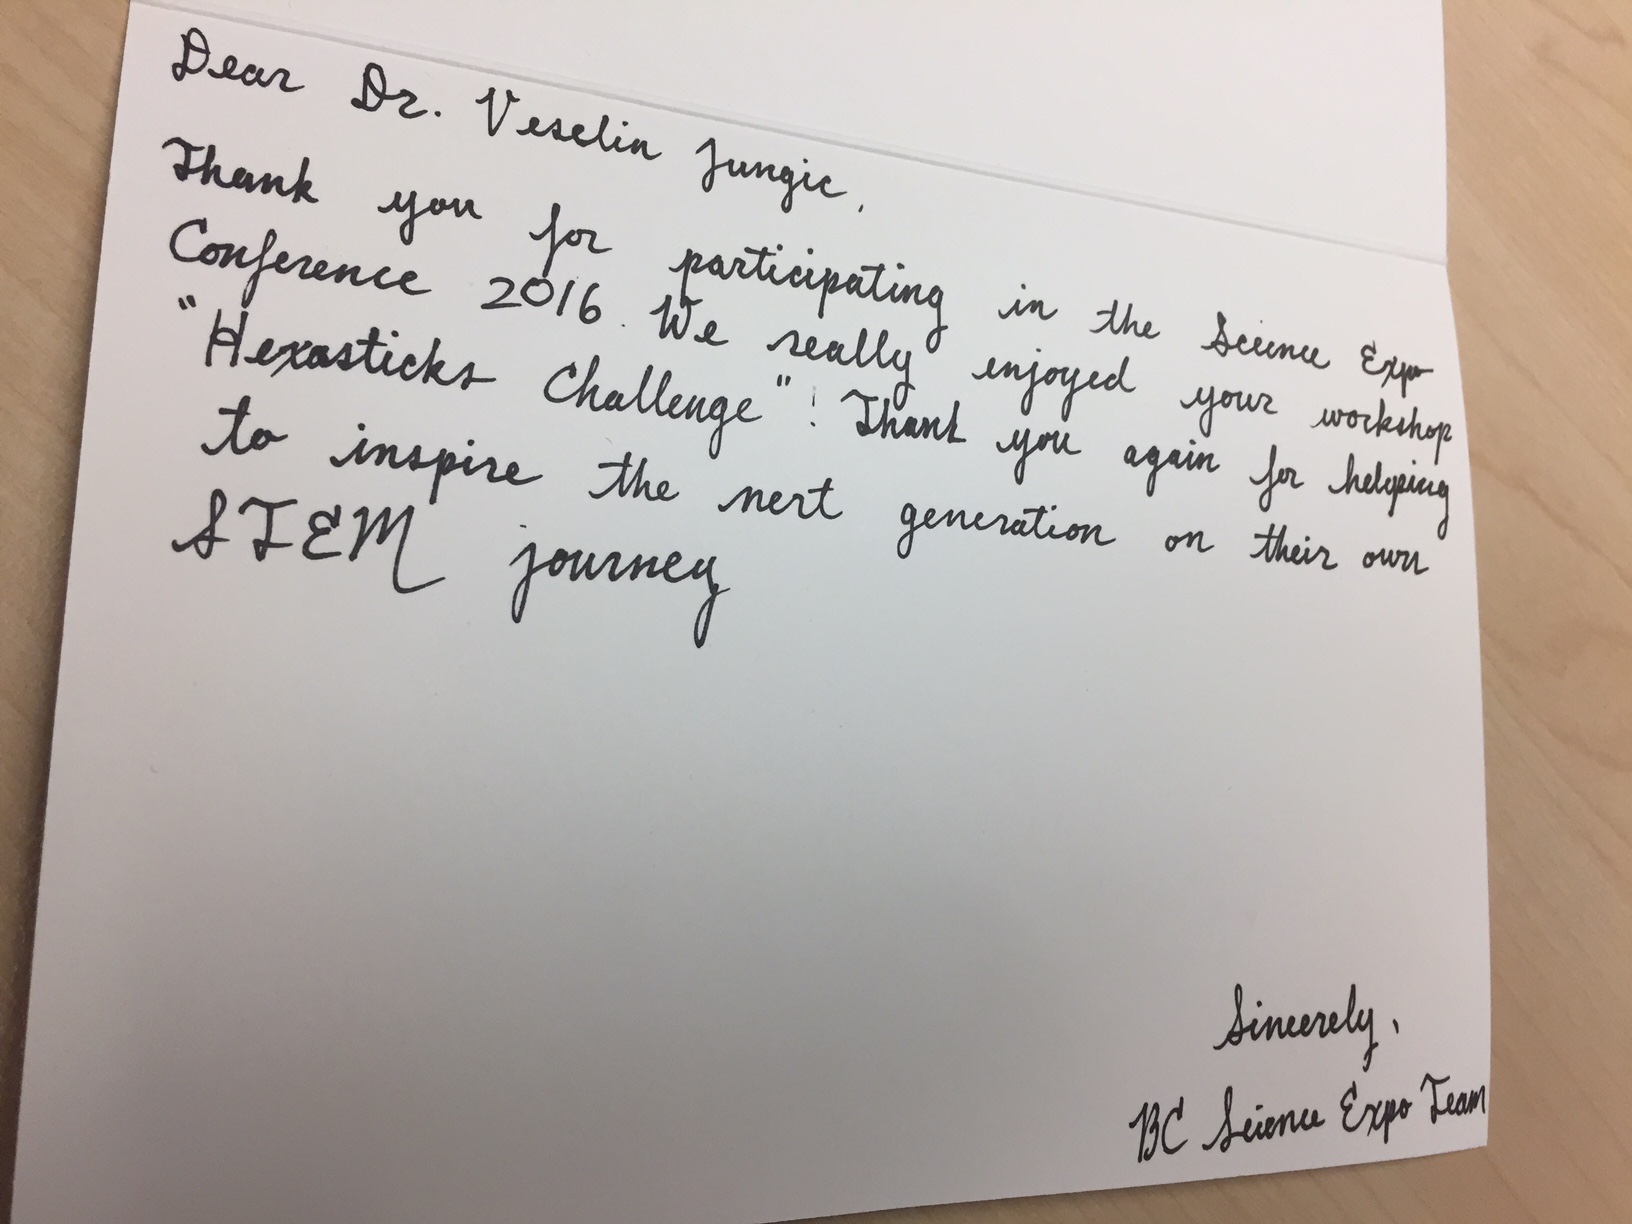 Dear Dr. Veselin Jungic,
Thank you for participating in the Science Expo
Conference 2016. We really enjoyed your workshop
"Hexasticks Challenge"! Thank you again for helping
to inspire the next generation on their own
STEM journey
Sincerely,
BC Science Expo Team